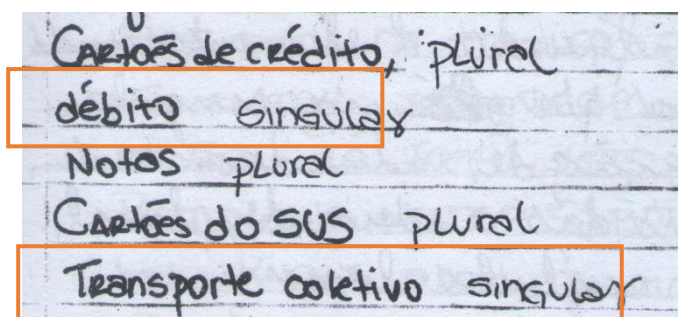 Cartões de crédito, plural
débito singular
Notos plural
Cartões do SUS plural
Transporte coletivo singular